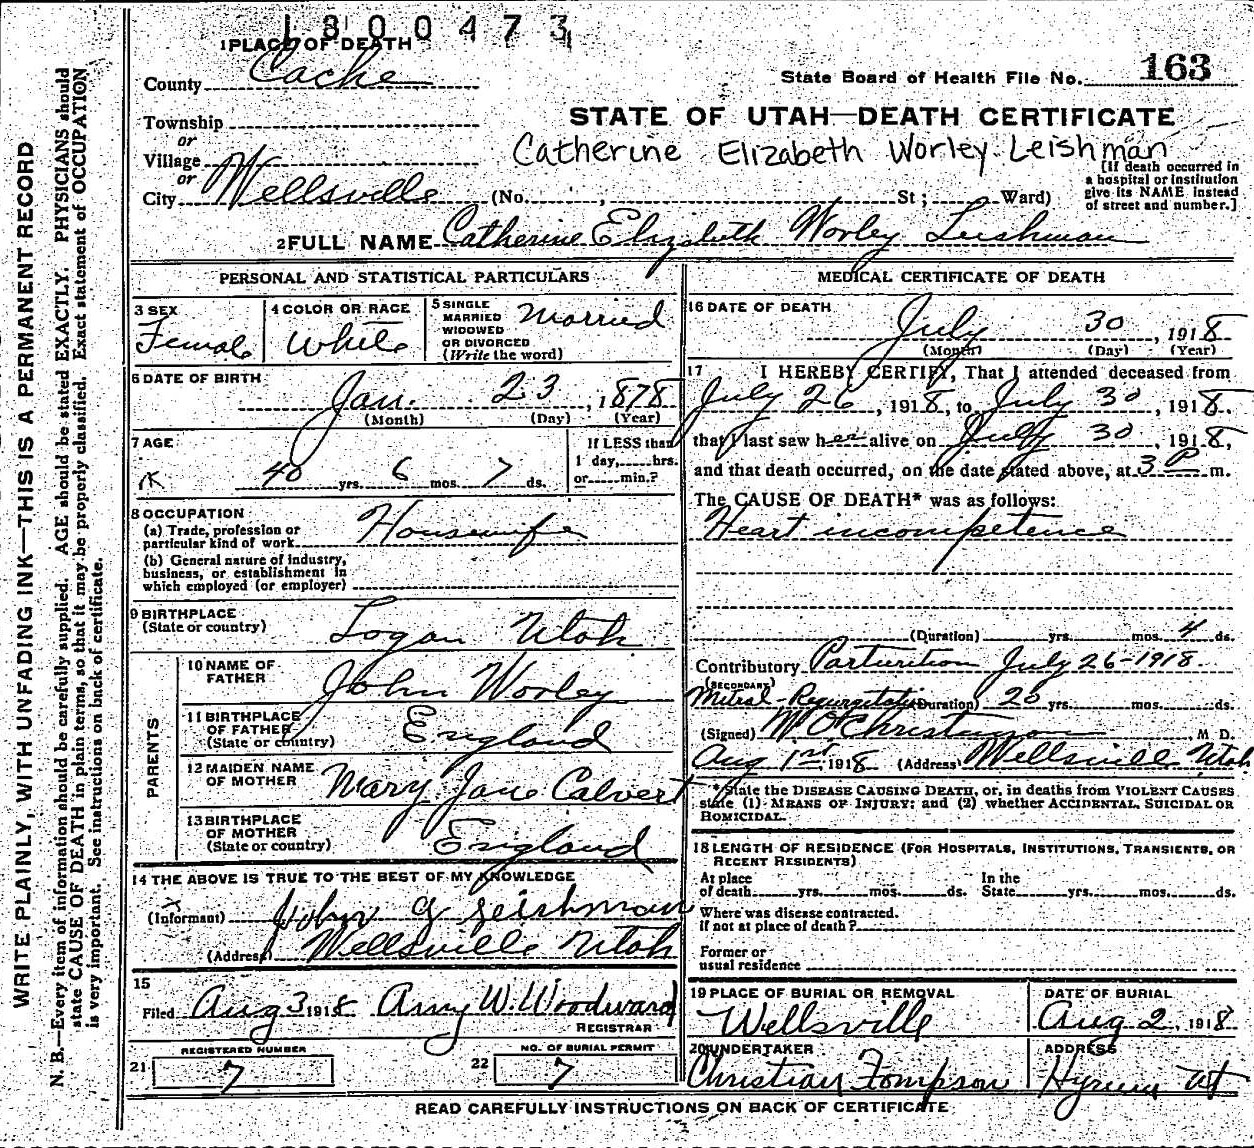 1300473
1 PLACE OF DEATH
County Cache
State Board of Health File No. 163
Township
or
Village
or
City Wellsville (No. , St ; Ward)
STATE OF UTAH—DEATH CERTIFICATE
Catherine Elizabeth Worley Leishman
[If death occurred in
a hospital or institution
give its NAME instead
of street and number.]
2 FULL NAME Catherine Elizabeth Worley Leishman
PERSONAL AND STATISTICAL PARTICULARS
3 SEX
Female
4 COLOR OR RACE
White
5 SINGLE
MARRIED
WIDOWED
OR DIVORCED
(Write the word)
Married
6 DATE OF BIRTH
Jan. 23, 1878
(Month) (Day) (Year)
7 AGE
40 yrs. 6 mos. 7 ds.
If LESS than
1 day, hrs.
or min.?
8 OCCUPATION
(a) Trade, profession or
particular kind of work Housewife
(b) General nature of industry,
business, or establishment in
which employed (or employer)
9 BIRTHPLACE
(State or country) Logan Utah
PARENTS
10 NAME OF
FATHER John Worley
11 BIRTHPLACE
OF FATHER
(State or country) England
12 MAIDEN NAME
OF MOTHER Mary Jane Calvert
13 BIRTHPLACE
OF MOTHER
(State or country) England
14 THE ABOVE IS TRUE TO THE BEST OF MY KNOWLEDGE
(Informant) John G Leishman
(Address) Wellsville Utah
15
Filed Aug 3 1918 Amy W. Woodward
REGISTRAR
21 REGISTERED NUMBER
7
22 NO. OF BURIAL PERMIT
7
MEDICAL CERTIFICATE OF DEATH
16 DATE OF DEATH
July 30, 1918
(Month) (Day) (Year)
17 I HEREBY CERTIFY, That I attended deceased from
July 26, 1918, to July 30, 1918.
that I last saw her alive on July 30, 1918,
and that death occurred, on the date stated above, at 3 P m.
The CAUSE OF DEATH* was as follows:
Heart incompetence
(Duration) yrs. mos. 4 ds.
Contributory Parturition July 26-1918
(SECONDARY)
Mitral Regurgitation (Duration) 20 yrs. mos. ds.
(Signed) W O Christenson M D.
Aug 1st, 1918 (Address) Wellsville Utah
*State the DISEASE CAUSING DEATH, or, in deaths from VIOLENT CAUSES
state (1) MEANS OF INJURY; and (2) whether ACCIDENTAL, SUICIDAL OR
HOMICIDAL.
18 LENGTH OF RESIDENCE (FOR HOSPITALS, INSTITUTIONS, TRANSIENTS, OR
RECENT RESIDENTS)
At place
of death yrs. mos. ds.
In the
State yrs. mos. ds.
Where was disease contracted.
if not at place of death?
Former or
usual residence
19 PLACE OF BURIAL OR REMOVAL
Wellsville
DATE OF BURIAL
Aug 2, 1918
20 UNDERTAKER
Christian Fompson
ADDRESS
Hyrum Ut
READ CAREFULLY INSTRUCTIONS ON BACK OF CERTIFICATE
WRITE PLAINLY, WITH UNFADING INK—THIS IS A PERMANENT RECORD
N. B.—Every item of information should be carefully supplied. AGE should be stated EXACTLY. PHYSICIANS should
state CAUSE OF DEATH in plain terms, so that it may be properly classified. Exact statement of OCCUPATION
is very important. See instructions on back of certificate.